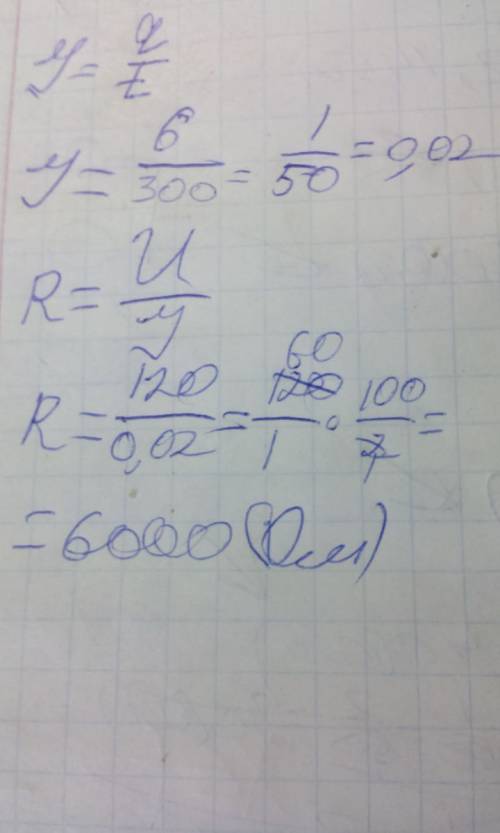 У = q/t
У = 6/300 = 1/50 = 0,02
R = U/У
R = 120/0,02 = 60 120/1 · 100/2 =
= 6000 (Ом)